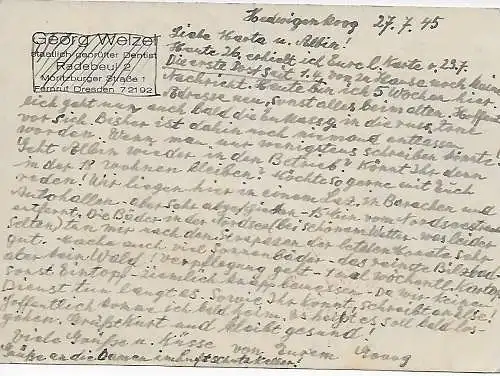 Hedwigenkoog 27.7.45
Georg Welzel
staatlich geprüfter Dentist
Radebeul 2
Moritzburger Straße 1
Fernruf Dresden 72192
Liebe Marta u. Albin!
Heute 26. erhielt ich Eure l. Karte v. 23.7.
Die erste Post seit 1.4. von zu Hause noch keine
Nachricht. Heute bin ich 5 Wochen hier.
Adresse neu, sonst alles beim alten. Hoffent-
lich geht nun auch bald die Entlassg in die russ. Zone
vor sich. Bisher ist dahin noch niemand entlassen
worden. Wenn man nur wenigstens schreiben könnte!
Geht in den Betrieb? Könnt Ihr denn
in der wohnen bleiben? Möchte so gerne mit Euch
reden! Wir liegen hier in einem in Baracken und
Autohallen - aber sehr - vom Nordseestrand
entfernt. Die Bäder in der Nordsee bei schönem Wetter - was leider
selten) tun mir nach den Strapazen der letzten Monate sehr
gut. Mache auch viel Sonnenbäder - das reinste
aber kein Wald! Verpflegung geht - 1 mal wöchentl. Kartoffeln
sonst Eintopf - ziemlich knapp bemessen - da wir keinen
Dienst tun langt es. Sowie Ihr könnt, schreibt an
Hoffentlich komme ich bald heim. Es heißt es soll bald los-
gehen. Grüßt Kurt und bleibt gesund!
Viele Grüße u. Küsse von Eurem Georg
Grüße an die Damen im Luftschutzkeller!